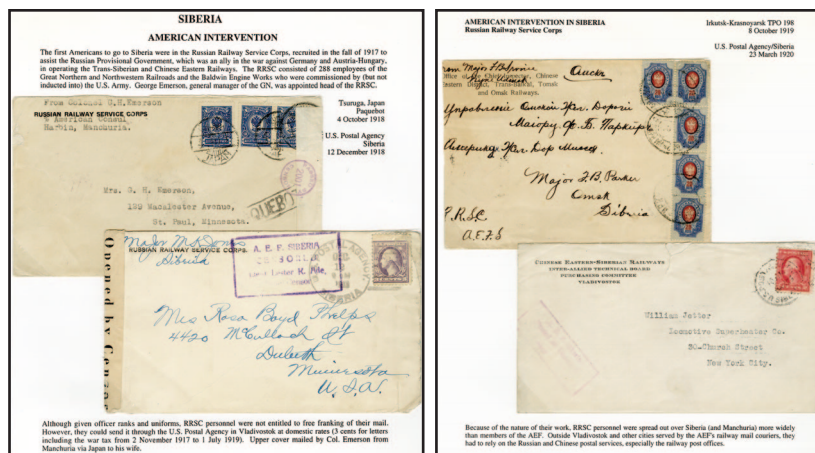 SIBERIA
AMERICAN INTERVENTION
The first Americans to go to Siberia were in the Russian Railway Service Corps, recruited in the fall of 1917 to
assist the Russian Provisional Government, which was an ally in the war against Germany and Austria-Hungary,
in operating the Trans-Siberian and Chinese Eastern Railways. The RRSC consisted of 288 employees of the
Great Northern and Northwestern Railroads and the Baldwin Engine Works who were commissioned by (but not
inducted into) the U.S. Army. George Emerson, general manager of the GN, was appointed head of the RRSC.
From Colonel G.H.Emerson
RUSSIAN RAILWAY SERVICE CORPS
% American Consul
Harbin, Manchuria.
Tsuruga, Japan
Paquebot
4 October 1918
U.S. Postal Agency
Siberia
12 December 1918
Mrs. G. H. Emerson,
St. Paul, Minnesota.
QUEBOT
Major
RUSSIAN RAILWAY SERVICE CORPS.
Siberia
A. E. F. SIBERIA
Opened by Censor
Miss Rosa Boyd Phelps
4420 McCulloch St
Duluth
Minnesota
U.S.A.
Although given officer ranks and uniforms, RRSC personnel were not entitled to free franking of their mail.
However, they could send it through the U.S. Postal Agency in Vladivostok at domestic rates (3 cents for letters
including the war tax from 2 November 1917 to 1 July 1919). Upper cover mailed by Col. Emerson from
Manchuria via Japan to his wife.
AMERICAN INTERVENTION IN SIBERIA
Russian Railway Service Corps
Irkutsk-Krasnoyarsk TPO 198
8 October 1919
U.S. Postal Agency/Siberia
23 March 1920
From Major
Chinese
Eastern District, Trans-Baikal, Tomsk
and Omsk Railways.
Омскъ
Управление Омской Жел. Дороги
Майору Ф. Б. Паркеръ
Major F. B. Parker
Omsk
Siberia
R.R.S.C.
A.E.F.S
CHINESE EASTERN-SIBERIAN RAILWAYS
INTER-ALLIED TECHNICAL BOARD
PURCHASING COMMITTEE
VLADIVOSTOK
William Jetter
Locomotive Superheater Co.
30-Church Street
New York City.
Because of the nature of their work, RRSC personnel were spread out over Siberia (and Manchuria) more widely
than members of the AEF. Outside Vladivostok and other cities served by the AEF's railway mail couriers, they
had to rely on the Russian and Chinese postal services, especially the railway post offices.